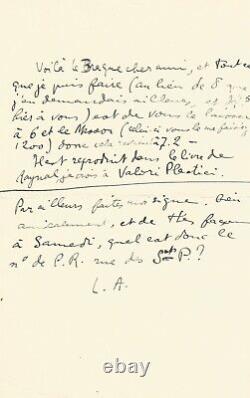 Voilà le Braque cher ami, et tout ce
que je puis faire (au lieu de 8 que
j'en demandais ailleurs, et
hier à vous) est de vous le laisser
à 6 et le Masson (celui à vous le
1200) donc 7.2 —
Il est reproduit dans le livre de
Raynal, je crois à Valori Plastici.
Par ailleurs faites moi signe. bien
amicalement, et de ttes façons
à Samedi, quel est donc le
n° de P.R. rue des Sts P.?
L. A.
© ebay